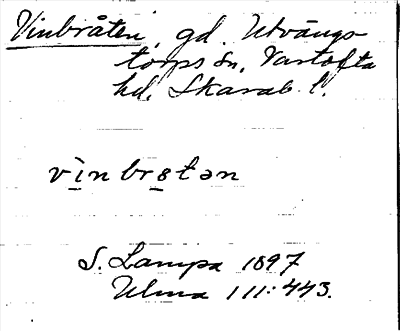 Vinbråten, gd. Utvängs
torps sn, Vartofta
hd, Skarab. l.
vìnbrɵtən
S. Lampa 1897
Ulma 111:443.